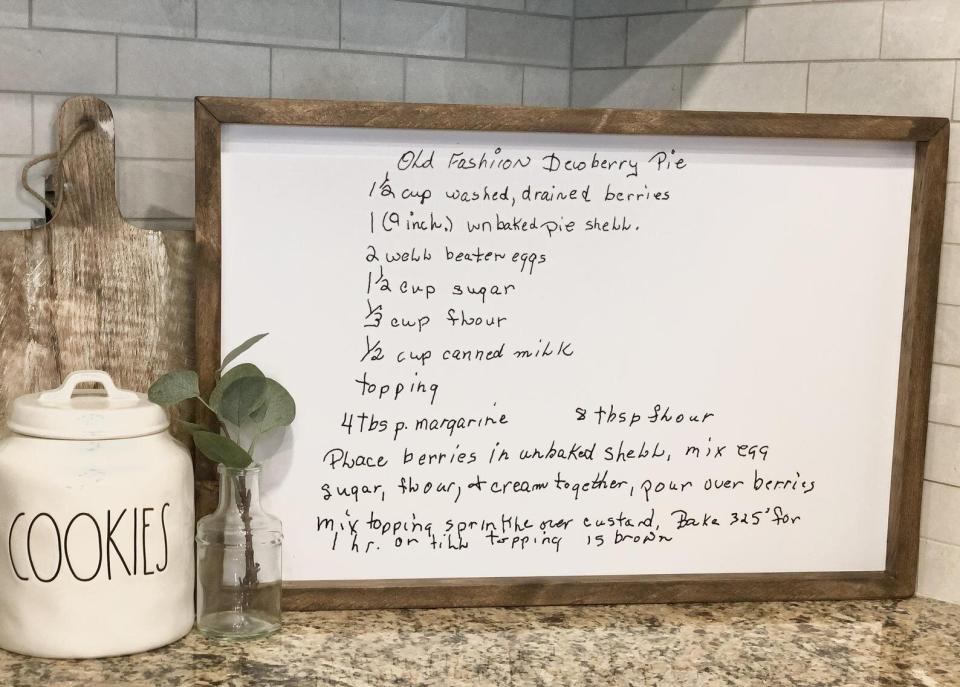 Old Fashiion Dewberry Pie
1 1/2 cup washed, drained berries
1 (9 inch.) unbaked pie shell.
2 well beaten eggs
1 1/2 cup sugar
1/3 cup flour
1/2 cup canned milk
topping
4 tbsp. margarine 8 tbsp flour
Place berries in unbaked shell, mix egg
sugar, flour, & cream together, pour over berries
mix topping sprinkle over custard. Bake 325° for
1 hr. or till topping is brown
COOKIES